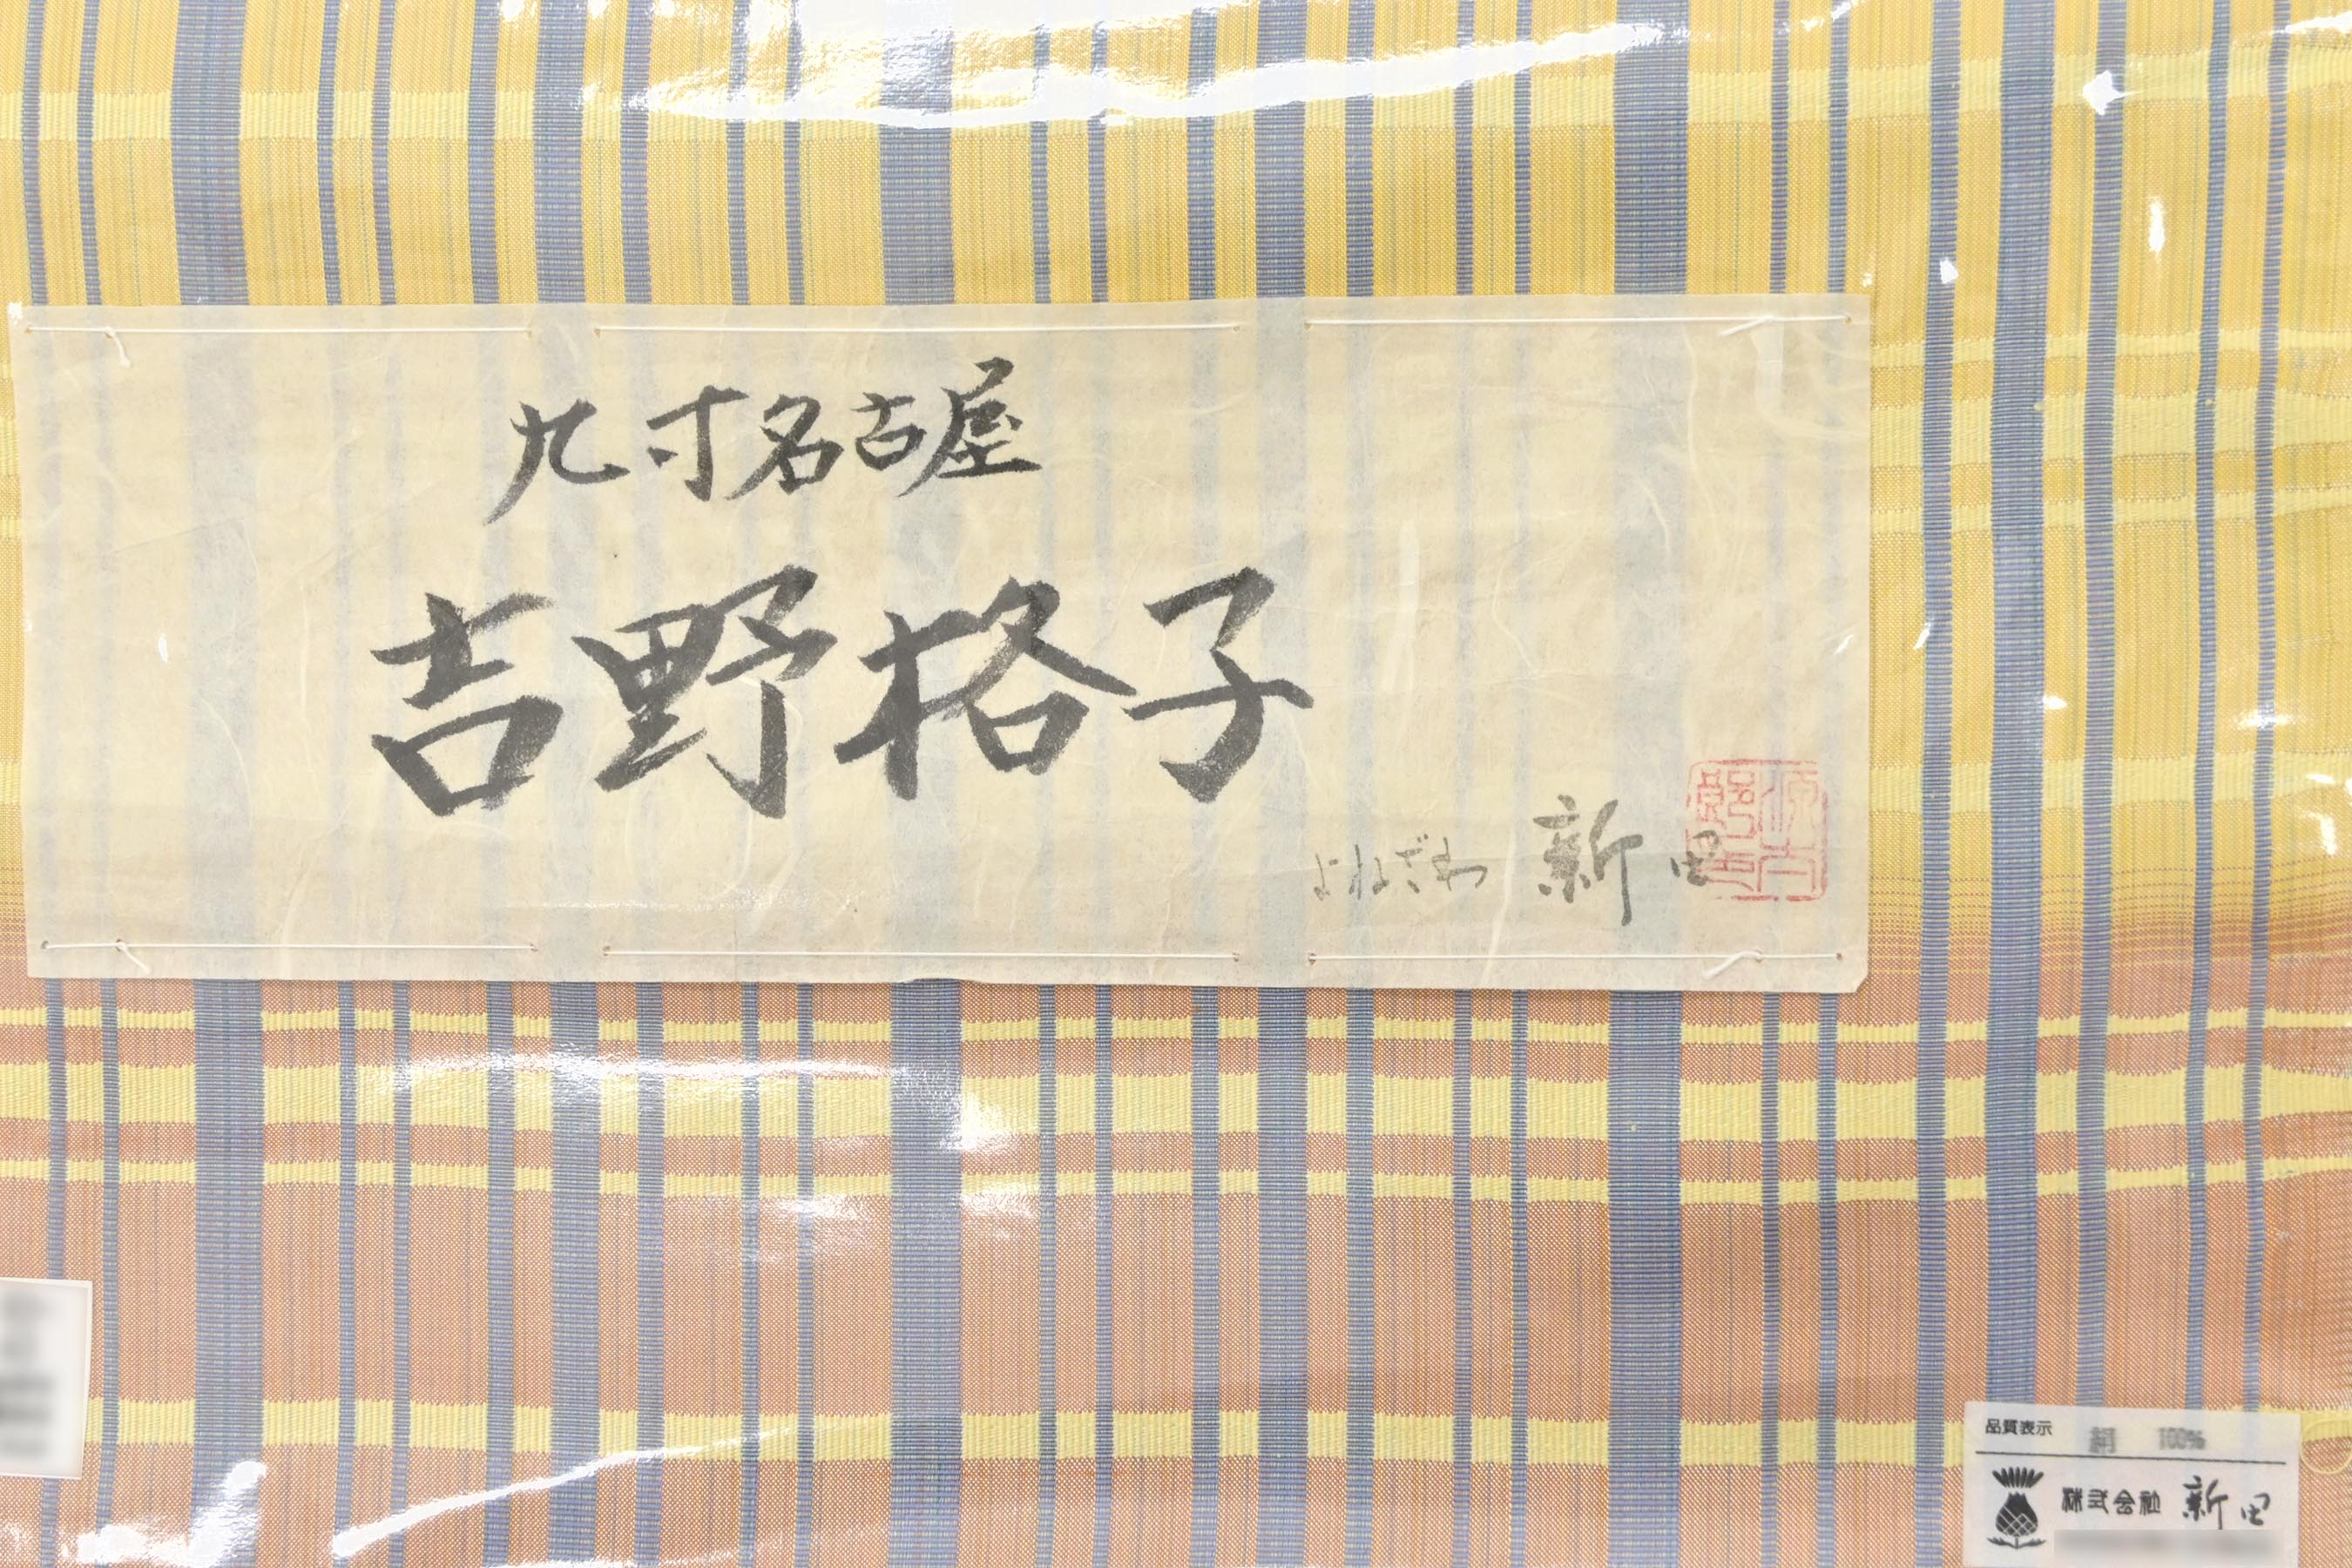 九寸名古屋
吉野格子
よねざわ 新田
品質表示 絹 100%
株式会社 新田